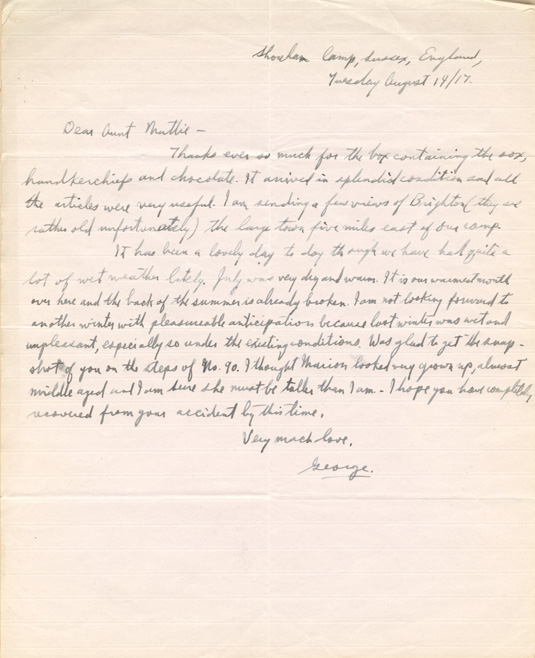 Shoreham Camp, Sussex, England,
Tuesday August 14/17.
Dear Aunt Muttie –
Thanks ever so much for the box containing the sox,
handkerchiefs and chocolate. It arrived in splendid condition and all
the articles were very useful. I am sending a few views of Brighton (they are
rather old unfortunately) the large town five miles east of our camp
It has been a lovely day to day though we have had quite a
lot of wet weather lately. July was very dry and warm. It is our warmest month
over here and the back of the summer is already broken. I am not looking forward to
another winter with pleasureable anticipation because last winter was wet and
unpleasant, especially so under the existing conditions. Was glad to get the snap-
shot of you on the steps of No. 90. I thought Marion looked very grown up, almost
middle aged and I am sure she must be taller than I am – I hope you have completely
recovered from your accident by this time.
Very much love,
George.